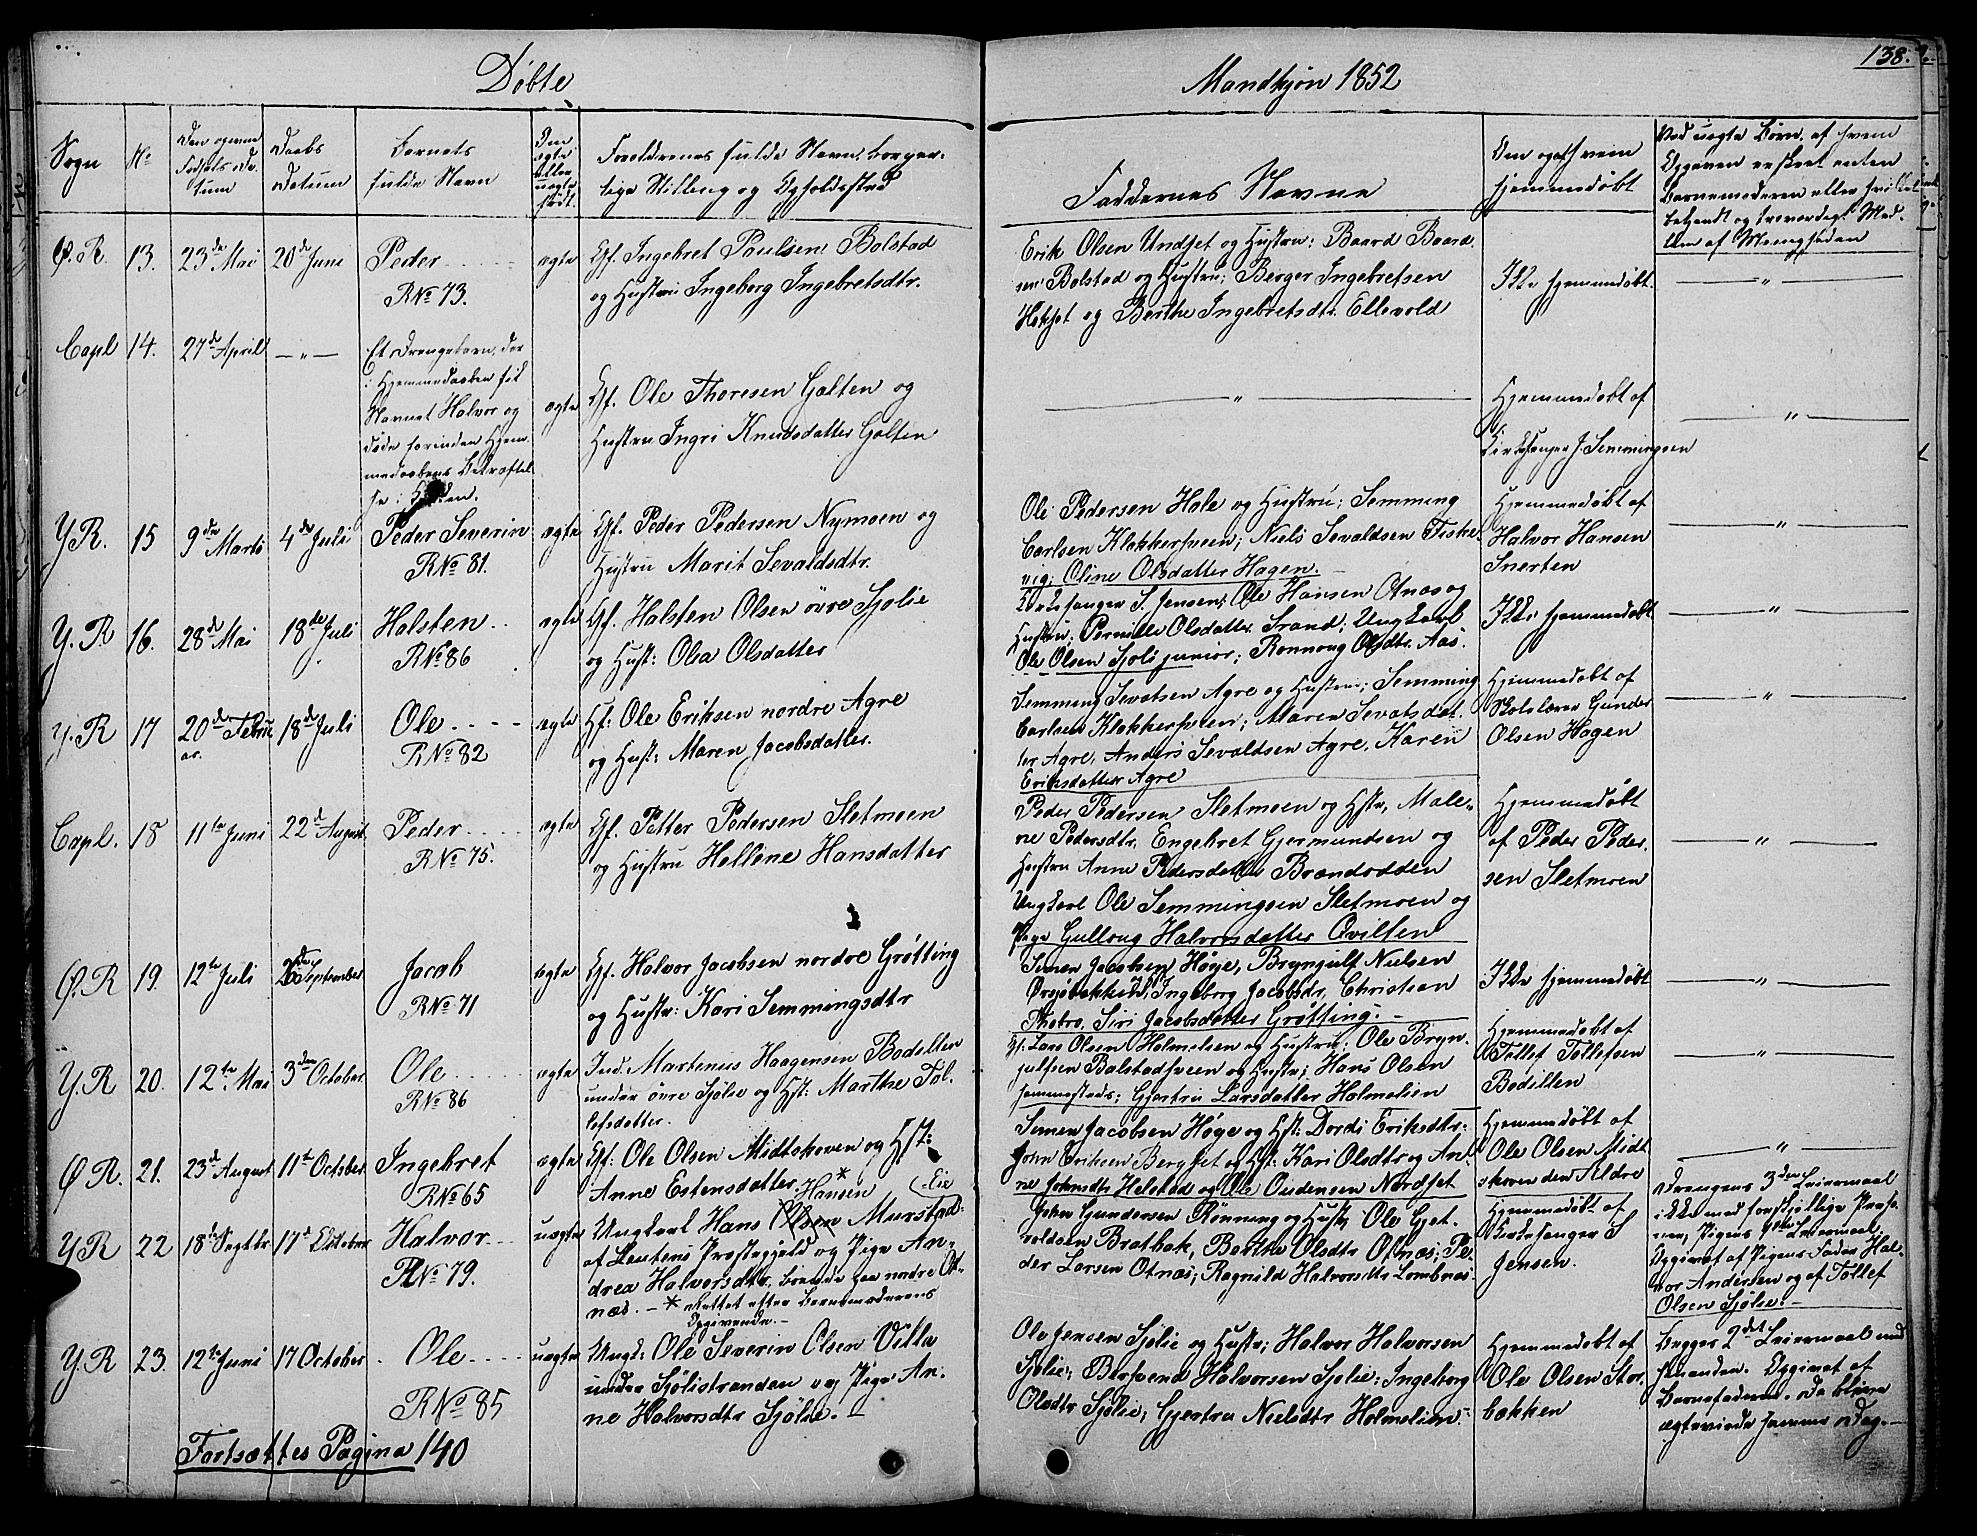 Døbte
Mandkjøn 1852
138.
Sogn
No
Den opgivne Fødsels Datum
Daabs Datum
Barnets fulde Navn
Om ægte eller uægte født.
Forældrenes fulde Navn, borgerlige Stilling og Opholdssted
Faddernes Navne
Om og af hvem hjemmedøbt
Ved uægte Børn, af hvem
Opgaven er skeet enten
Barnemoderen eller hvilket
bekjendt og troværdigt Med-
lem af Menigheden
Ø.R 13. 23de Mai 20de Juni Peder
R No 73.
ægte
Gf. Ingebret Paulsen Bolstad
og Hustru Ingeborg Ingebretsdtr.
Erik Olsen Undset og Hustru; Baard Baard
sen Bolstad og Hustru; Berger Ingebretsen
Hokset og Berthe Ingebretsdtr. Ellevold
Ikke hjemmedøbt.
"
Capl 14. 27de April "
Et Drengebarn, der
i Hjemmedaaben fik
Navnet Halvor og
døde forinden Hjem-
medaabens Bekræftel-
se i Kirken.
ægte
Gf. Ole Thoresen Galten og
Hustru Ingri Knudsdatter Galten
"
Hjemmedøbt af
Kirkesanger J. Semmingsen
"
Y.R. 15 9de Marts 4de Juli Peder Severin
R No 81.
ægte
Gf. Peder Pedersen Nymoen og
Hustru Marit Sevaldsdtr.
Ole Pedersen Hole og Hustru; Semming
Carlsen Klokkerhveen; Niels Sevaldsen Fiske-
vig; Oline Olsdatter Hagen.
Hjemmedøbt af
Halvor Hansen
Snerten
"
Y.R 16. 28de Mai 18de Juli Halsten
R No 86
ægte
Gf. Halsten Olsen øvre Sjølie
og Hust: Olea Olsdatter
Kirkesanger S. Jensen; Ole Hansen Otnæs og
Hustru; Pernille Olsdatter Strand; Ungkarl
Ole Olsen Sjøli junior; Rønnoug Olsdtr. Aas.
Ikke hjemmedøbt
"
Y.R 17 20de Febru
ar. 18de Juli Ole
R No 82
ægte
Gf: Ole Eriksen nordre Agre
og Hust: Maren Jacobsdatter.
Semming Sevatsen Agre og Hustru; Semming
Carlsen Klokkerhveen; Maren Sevatsdat
ter Agre, Anders Sevaldsen Agre, Karen
Eriksdatter Agre
Hjemmedøbt af
Skolelærer Gunder
Olsen Hagen
"
Capl. 18 11te Juni 22d August Peder
R No 75.
ægte
Gf. Petter Pedersen Sletmoen
og Hustru Hellene Hansdatter
Peder Pedersen Sletmoen og Hst., Male-
ne Pedersdtr. Engebret Gjermundsen og
Hustru Anne Pedersdatter Brændodden
Ungkarl Ole Semmingsen Sletmoen og
Pige Gulloug Halvorsdatter Qvilten
Hjemmedøbt
af Peder Peder-
sen Sletmoen
"
Ø.R 19. 12te Juli 26de September Jacob
R No 71
ægte
Gf. Halvor Jacobsen nordre Grøtting
og Hustr: Kari Semmingsdtr
Simen Jacobsen Høye, Bryngulf Nielsen
Ørsjøbakken, Ingeborg Jacobsdtr, Christian
Thobro, Siri Jacobsdatter Grøtting.
Ikke hjemmedøbt
"
Y.R 20. 12te Mai 3den October Ole
R No 86
ægte
Ind. Martinus Haagensen Bodilten
under øvre Sjølie og Hst: Marthe Tol-
lefsdatter.
Gf. Lars Olsen Holmelien og Hustru; Ole Bryn-
julfsen Bolstadhveen og Hustr; Hans Olsen
sammesteds; Gjertru Larsdatter Holmelien
Hjemmedøbt af
Tollef Tollefsen
Bodilten
"
Ø.R. 21. 23d August 11te October Ingebret
R No 65
ægte
Gf: Ole Olsen Midtskoven og Hst:
Anne Estensdatter
Simen Jacobsen Høye og Hst: Dordi Eriksdtr:
John Eriksen Bergset og Hst: Kari Olsdtr og An-
ne Johnsdtr Helstad og Ole Oudensen Nordset
Hjemmedøbt af
Ole Olsen Midt
skoven den Ældre
"
Y.R 22 18d Septbr. 17d October Halvor
R No 79.
uægte
Hansen*
Ungkarl Hans Olsen Murstad-
Eie
af Leutens Præstegjeld og Pige An-
drea Halvorsdtr. boende paa nordre Ot-
næs. - * Rettet efter Barnemoderens
Opgivende. -
John Gundersen Rønning og Hustr, Ole Gjet-
voldsen Bratbak, Berthe Olsdtr Otnæs; Pe-
der Larsen Otnæs; Ragnild Halvorsdtr Lombnæs
Hjemmedøbt af
Kirkesanger S
Jensen.
Drengens 3die Leiermaal
ikke med forskjellige Perso-
ner, Pigens 1ste Leiermaal
Opgivet af Pigens Fader Hal-
vor Andersen og af Tollef
Olsen Sjølie. -
Y.R 23. 12te Juni 17 October Ole
R No 85
uægte
Ungk: Ole Severin Olsen Vitla
under Sjølistranden og Pige An-
ne Halvorsdtr Sjølie. -
Ole Jensen Sjølie og Hustr; Halvor Halvorsen
Sjølie; Berhvend Halvorsen Sjølie; Ingeborg
Olsdtr Sjølie; Gjertru Nielsdtr Holmelien. -
Hjemmedøbt af
Ole Olsen Stor-
bakken
Begges 2det Leiermaal med
hinanden. Opgivet af
Barnefaderen. De bleve
ægteviede samme Dag. -
Fortsættes Pagina 140